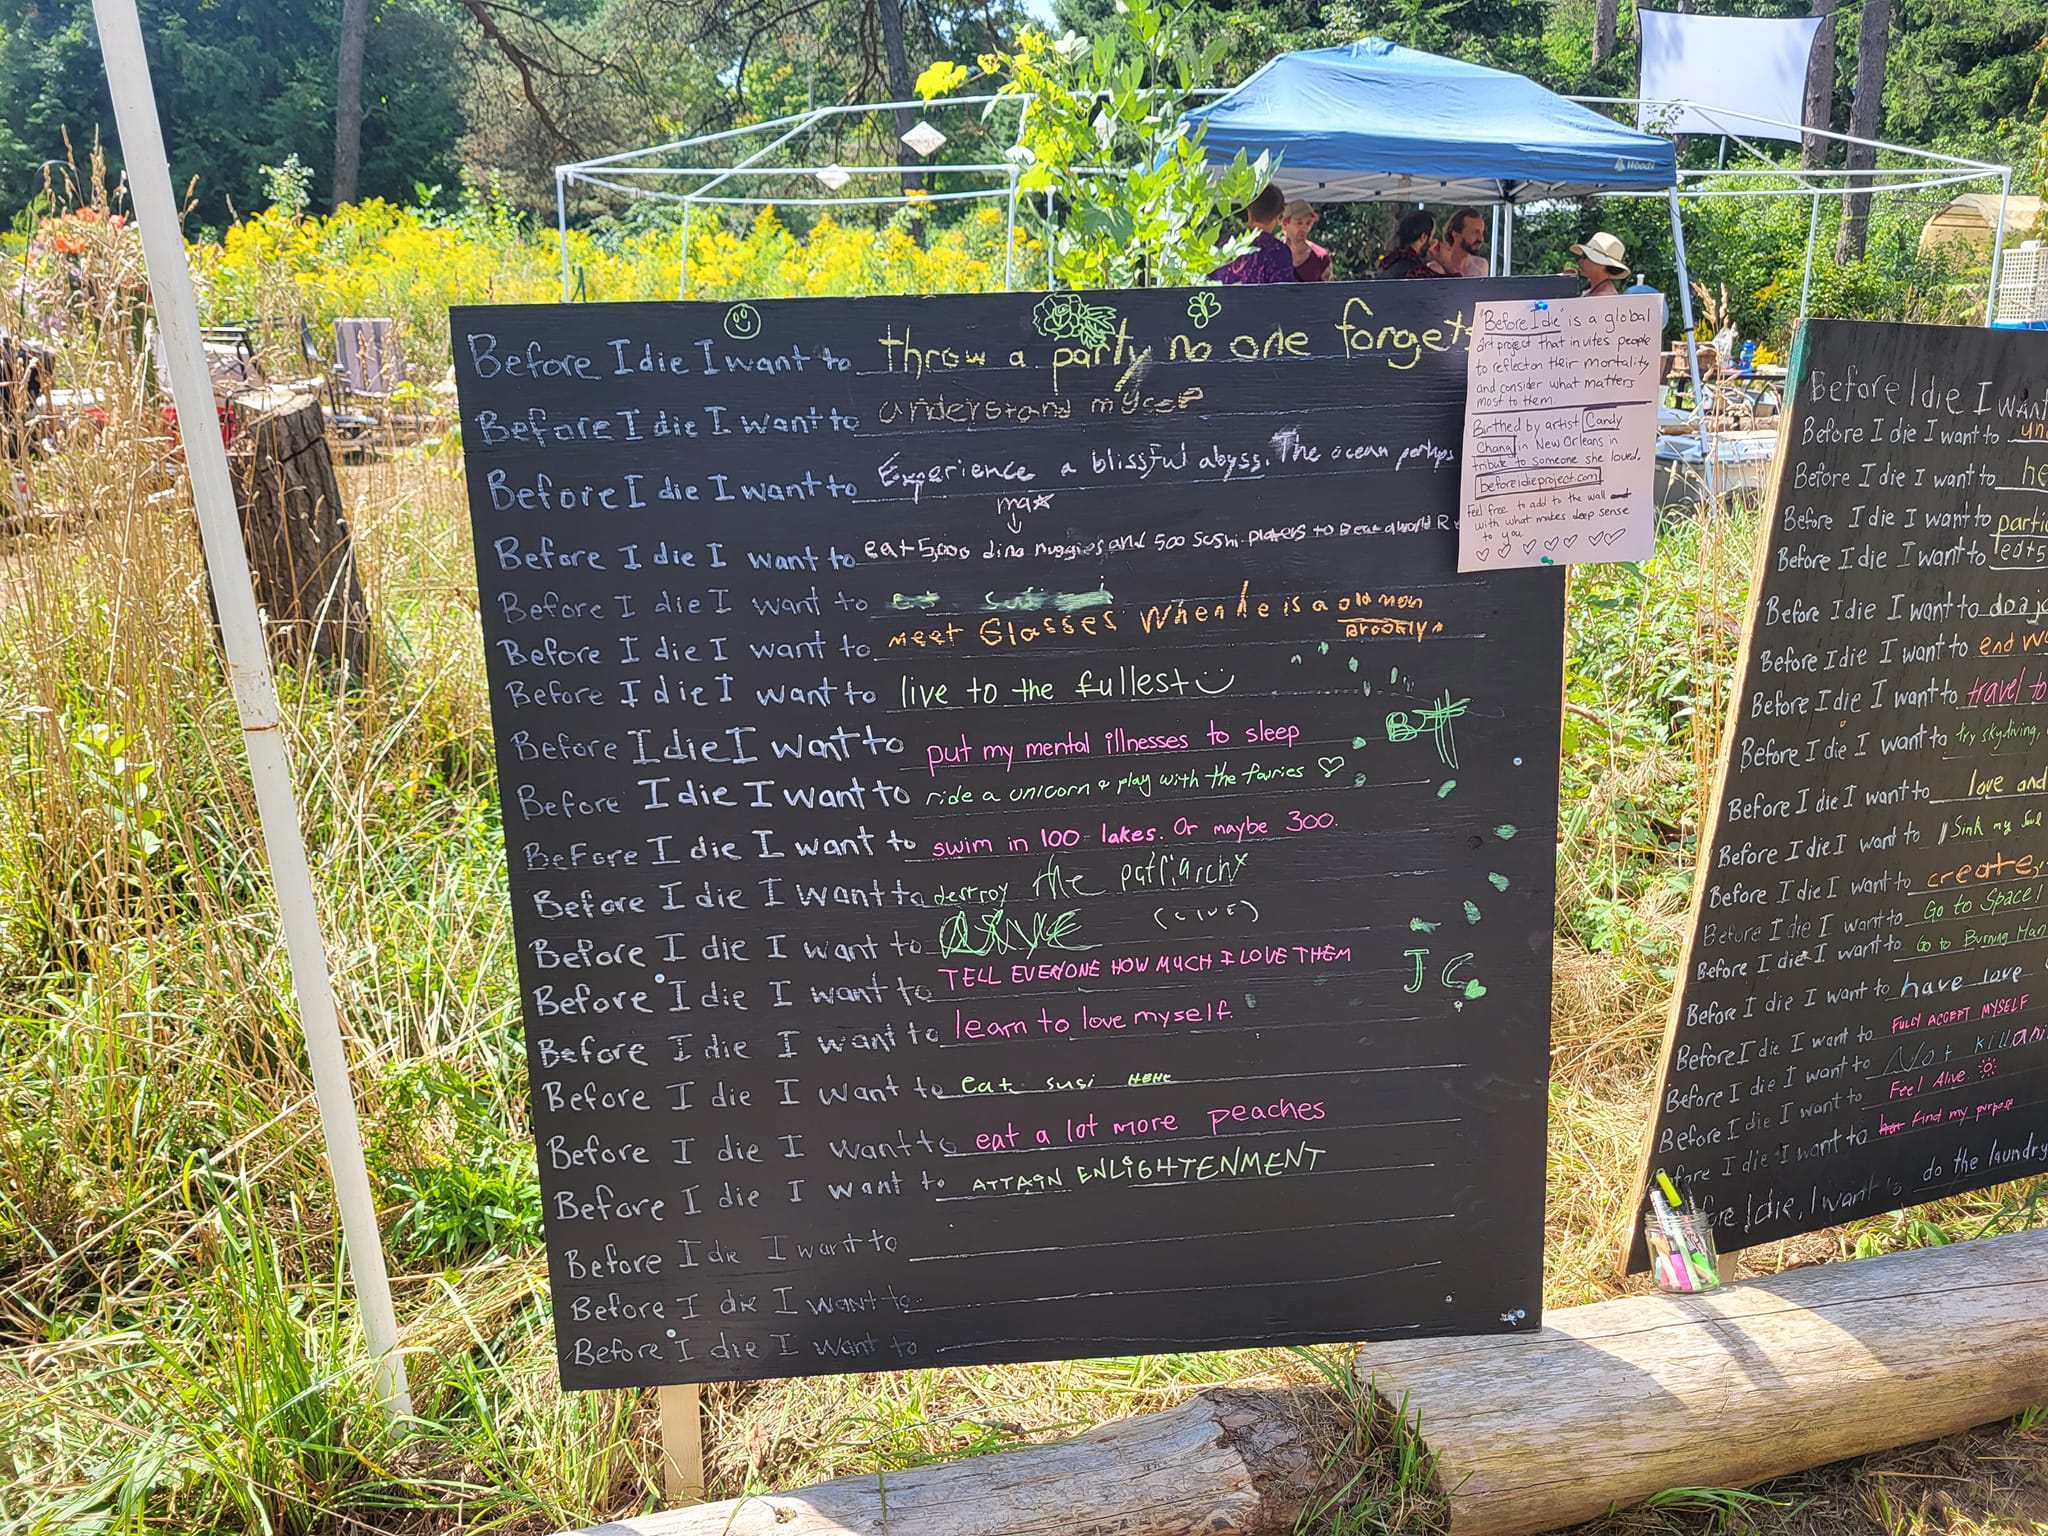 Before I die I want to throw a party no one forgets
Before I die I want to understand myself
Before I die I want to Experience a blissful abyss. The ocean perhaps
max
Before I die I want to eat 5,000 dino nuggies and 500 sushi platers to Beat a world R
Before I die I want to
Before I die I want to meet Glasses When he is a old man
Brooklyn
Before I die I want to live to the fullest
Before I die I want to put my mental illnesses to sleep
Before I die I want to ride a unicorn & play with the fairies
Before I die I want to swim in 100 lakes. Or maybe 300.
Before I die I want to destroy the patriarchy
Before I die I want to (LIVE)
Before I die I want to TELL EVERYONE HOW MUCH I LOVE THEM
J C
Before I die I want to learn to love myself.
Before I die I want to eat susi HEHE
Before I die I want to eat a lot more peaches
Before I die I want to ATTAIN ENLIGHTENMENT
Before I die I want to
Before I die I want to
Before I die I want to
"Before I die" is a global
art project that invites people
to reflect on their mortality
and consider what matters
most to them.
Birthed by artist Candy
Chang in New Orleans in
tribute to someone she loved.
beforeidieproject.com
Feel free to add to the wall
with what makes deep sense
to you
Before I die I WANT
Before I die I want to un
Before I die I want to he
Before I die I want to partic
Before I die I want to eat 5
Before I die I want to do a jo
Before I die I want to end w
Before I die I want to travel to
Before I die I want to try skydiving,
Before I die I want to love and
Before I die I want to Sink my Soul
Before I die I want to create,
Before I die I want to Go to Space!
Before I die I want to Go to Burning Man
Before I die I want to have love
Before I die I want to FULLY ACCEPT MYSELF
Before I die I want to Not kill ani
Before I die I want to Feel Alive
fore I die I want to find my purpose
fore I die, I want to do the laundry
Woods